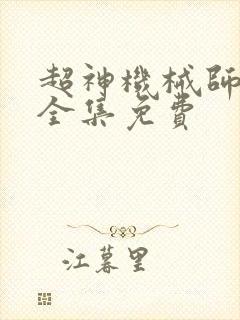 超神機械師
全集免費
江暮里